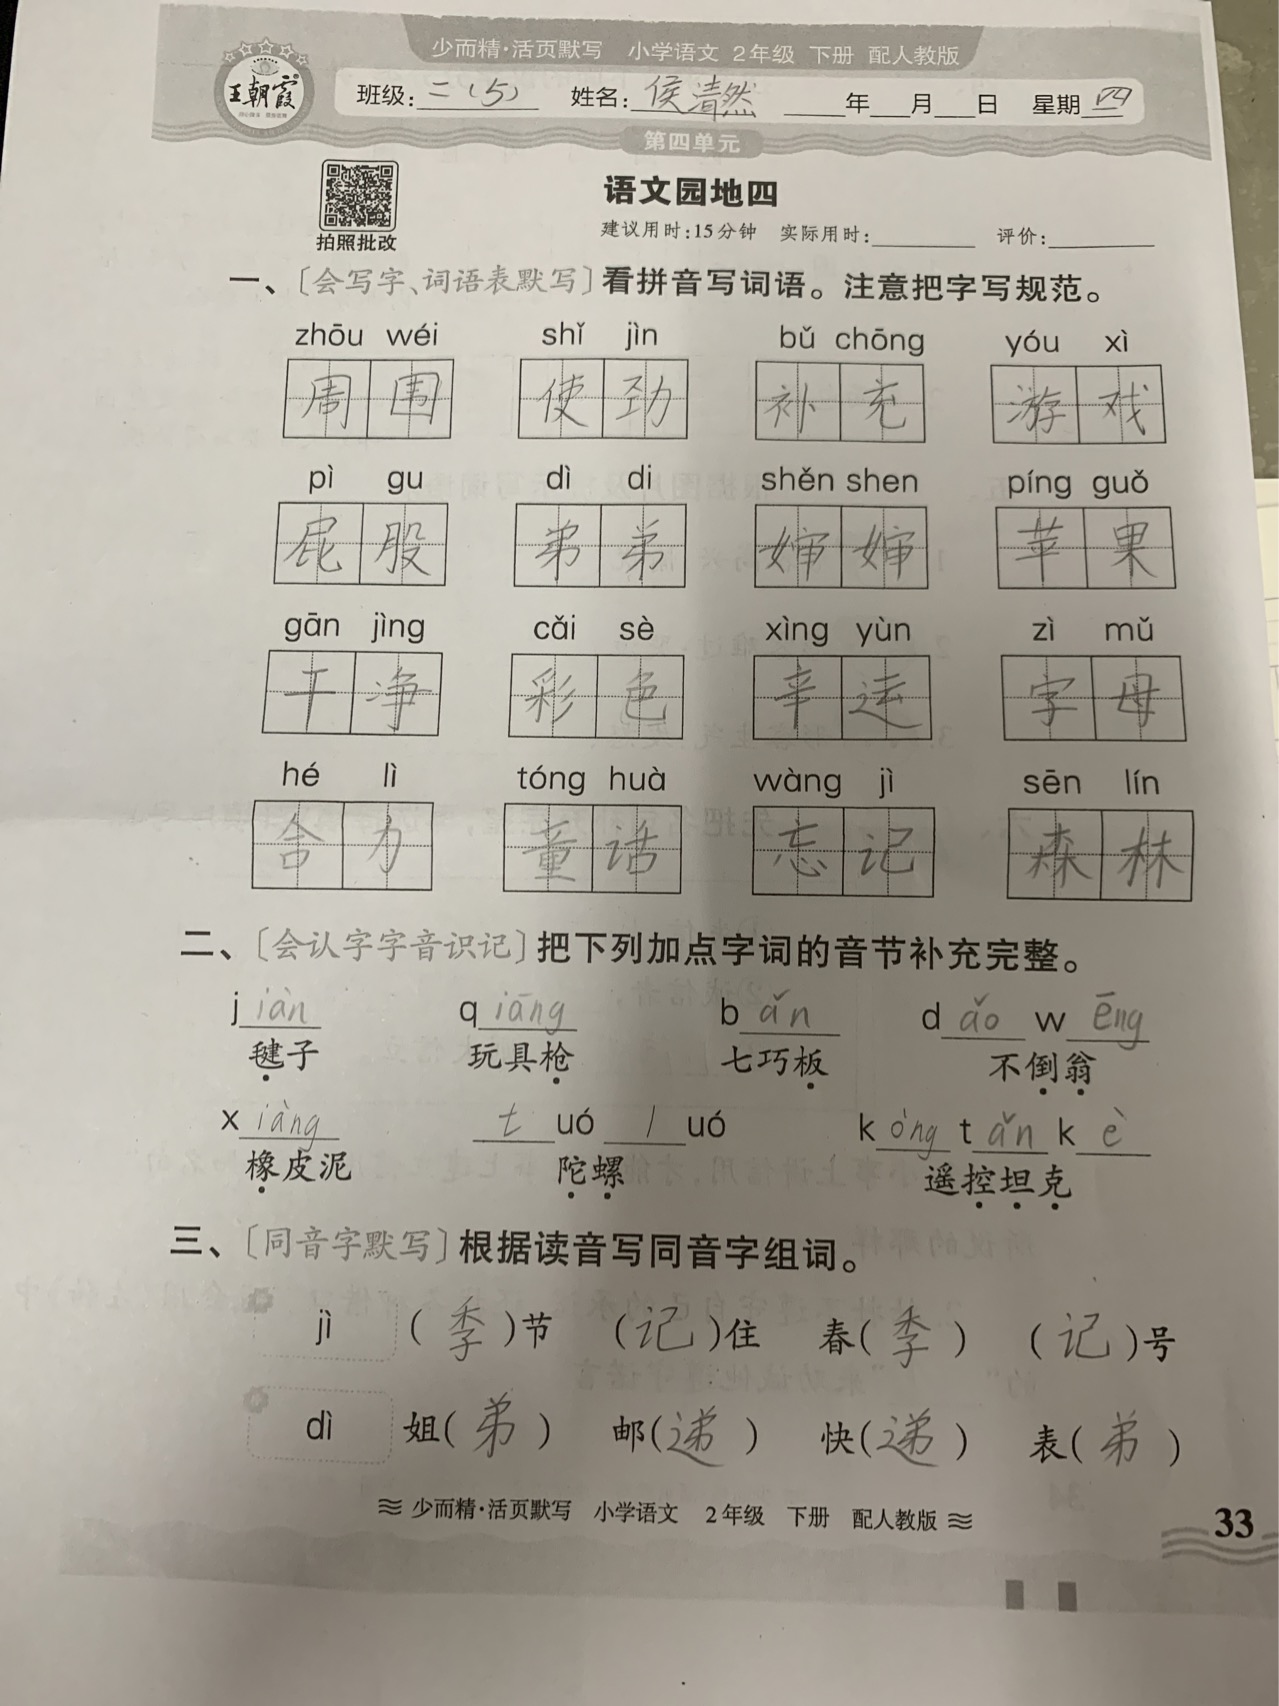 少而精·活页默写 小学语文 2年级 下册 配人教版
王朝霞
班级:二(5) 姓名:侯清然 年 月 日 星期四
第四单元
语文园地四
拍照批改
建议用时:15分钟 实际用时: 评价:
一、〔会写字、词语表默写〕看拼音写词语。注意把字写规范。
zhōu wéi shǐ jìn bǔ chōng yóu xì
周围 使劲 补充 游戏
pì gu dì di shěn shen píng guǒ
屁股 弟弟 婶婶 苹果
gān jìng cǎi sè xìng yùn zì mǔ
干净 彩色 辛运 字母
hé lì tóng huà wàng jì sēn lín
合力 童话 忘记 森林
二、〔会认字字音识记〕把下列加点字词的音节补充完整。
jiàn qiāng bǎn dǎo wēng
毽子 玩具枪 七巧板 不倒翁
xiàng tuó luó kòng tǎn kè
橡皮泥 陀螺 遥控坦克
三、〔同音字默写〕根据读音写同音字组词。
jì (季)节 (记)住 春(季) (记)号
dì 姐(弟) 邮(递) 快(递) 表(弟)
少而精·活页默写 小学语文 2年级 下册 配人教版
33